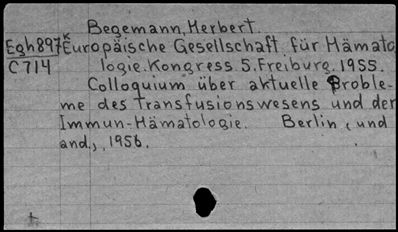 Begemann, Herbert.
Egh897K Europäische Gesellschaft für Hämato
C714 logie. Kongress 5. Freiburg. 1955.
Colloquium über aktuelle Proble-
me des Transfusionswesens und der
Immun-Hämatologie. Berlin, und
and., 1956.